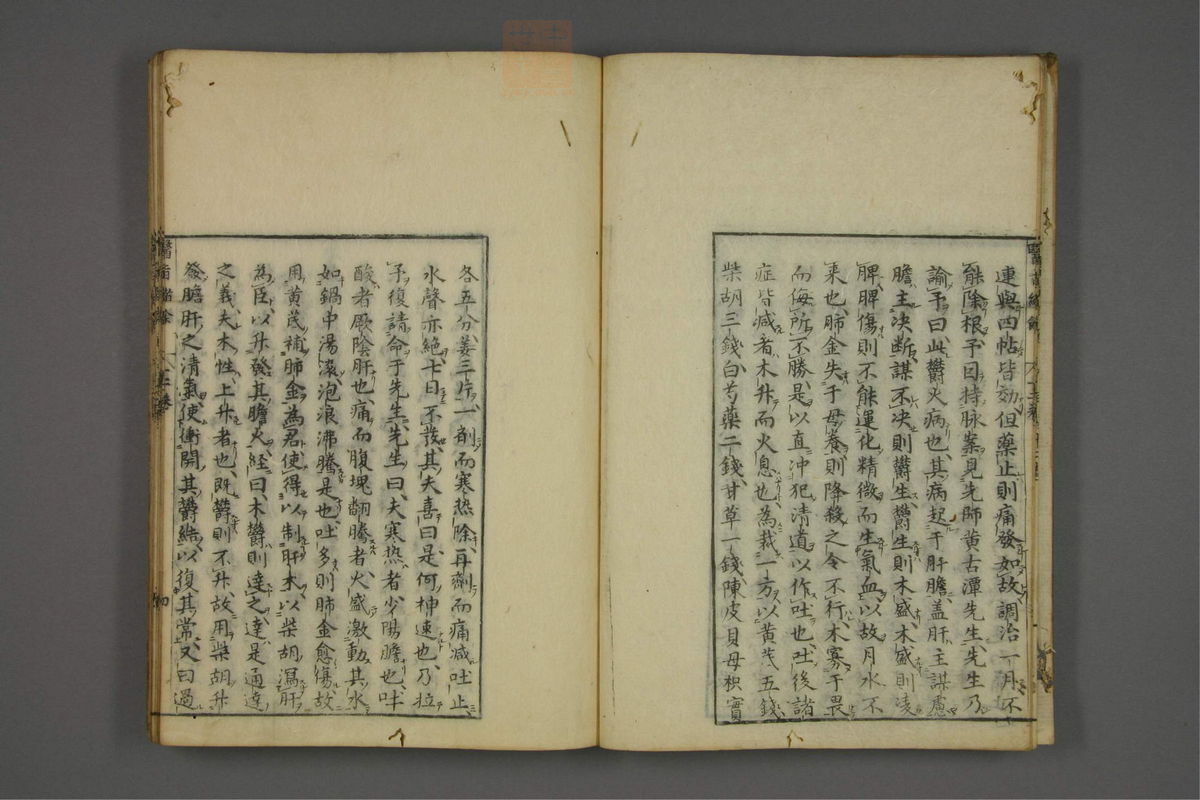 連與四帖皆効但藥止則痛發如故調治一月不
能除根予因持脉案見先師黄古潭先生先生乃
諭予曰此欝火病也其病起于肝膽盖肝主謀慮
膽主决断謀不决則欝生欝生則木盛木盛則凌
脾脾傷則不能運化精微而生氣血以故月水不
来也肺金失于母養則降殺之令不行木寡于畏
而侮所不勝是以直冲犯清道以作吐也吐後諸
症皆減者木升而火息也為裁一方以黄茂五錢
柴胡三錢白芍藥二錢甘草一錢陳皮貝母枳實
各五分姜三片一劑而寒热除再劑而痛減吐止
水聲亦絶七日不發其夫喜曰是何神速也乃拉
予復請命于先生先生曰夫寒热者少陽膽也吐
酸者厥陰肝也痛而腹塊翻騰者火盛激動其水
如鍋中湯滚泡浪沸騰是也吐多則肺金愈傷故
用黄茂補肺金為君使得以制肝木以柴胡瀉肝
為臣以升發其膽火経曰木欝則達之達是通達
之義夫木性上升者也既欝則不升故用柴胡升
發膽肝之清氣使衝開其欝結以復其常又曰過